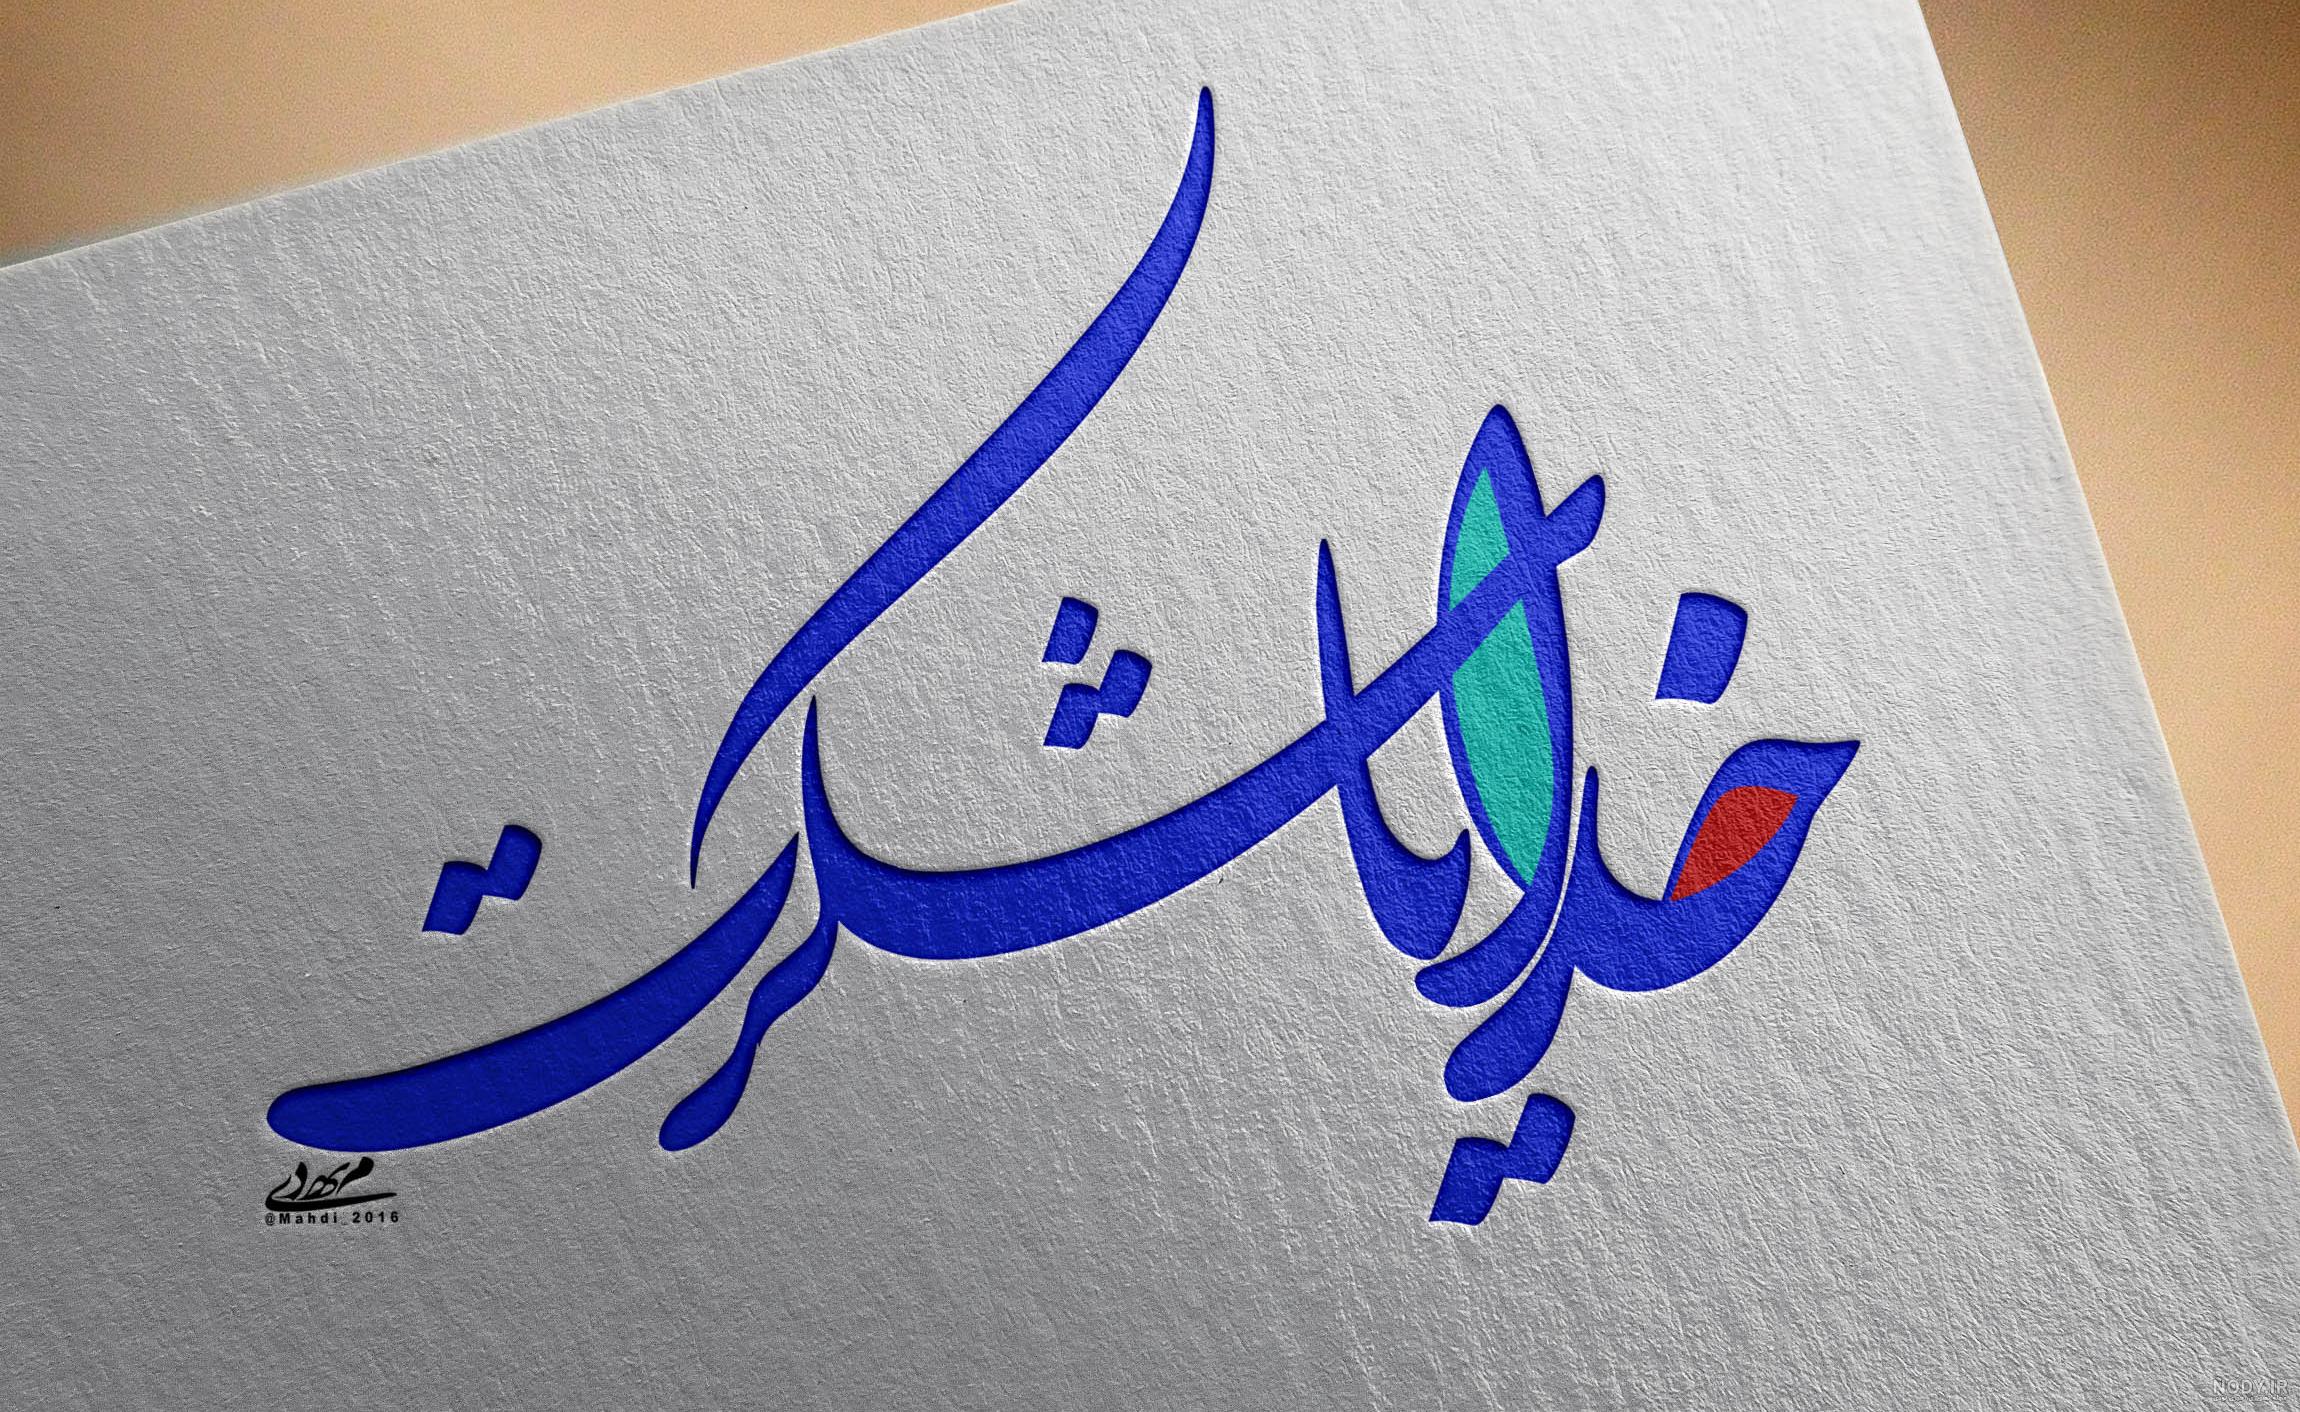 خدایا شکرت
مهدی
@Mahdi_2016
NODY.IR